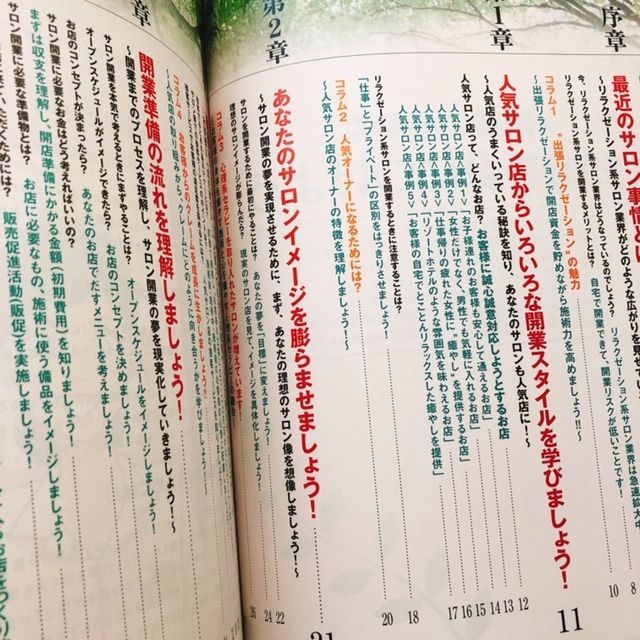 序章
最近のサロン事
～リラクゼーション系サロン業界はどのような広がりを見せて
今、リラクゼーション系サロン業界はどうなっているのでしょう？ リラクゼーション系サロン業界は急速拡大
リラクゼーション系サロンを開業するメリットとは？ 自宅で開業できて、開業リスクが低いことです！
8
10
コラム1 “出張リラクゼーション”の魅力
～出張リラクゼーションで開店資金を貯めながら施術力を高めましょう!!～
第1章
人気サロン店からいろいろな開業スタイルを学びましょう！
11
～人気店のうまくいっている秘訣を知り、あなたのサロンも人気店に！～
人気サロン店って、どんなお店？ お客様に誠心誠意対応しようとするお店
12
人気サロン店＜事例1＞「お子様連れのお客様も安心して通えるお店」
13
人気サロン店＜事例2＞「女性だけでなく、男性でも気軽に入れるお店」
14
人気サロン店＜事例3＞「仕事帰りの疲れた女性に“癒やし”を提供するお店」
15
人気サロン店＜事例4＞「リゾートホテルのような雰囲気を味わえるお店」
16
人気サロン店＜事例5＞「お客様の自宅でとことんリラックスした癒やしを提供」
17
リラクゼーション系サロンを開業するときに注意することは？
「仕事」と「プライベート」の区別をはっきりさせましょう！
18
コラム2 人気オーナーになるためには？
～人気サロン店のオーナーの特徴を理解しましょう！～
20
第2章
あなたのサロンイメージを膨らませましょう！
21
～サロン開業の夢を実現させるために、まず、あなたの理想のサロン像を想像しましょう！～
サロンを開業するために最初にやることは？ あなたの夢を「目標」に変えましょう！
22
理想のサロンイメージが膨らんだら？ 現実のサロン店を見て、イメージを具体化しましょう！
24
コラム3 心理系セラピーを取り入れたサロンが増えています
26
コラム4 お客様からのクレームを成長に生かしましょう!!
章
開業準備の流れを理解しましょう！
～開業までのプロセスを理解し、サロン開業の夢を現実化していきましょう！～
サロン開業を本気で考えるときにまずやることは？ オープンスケジュールをイメージしましょう！
オープンスケジュールがイメージできたら？ お店のコンセプトを決めましょう！
お店のコンセプトが決まったら？ あなたのお店でだすメニューを考えましょう！
サロン開業に必要なお金はどう考えればいいの？
まずは収支を理解し、開店準備にかかる金額（初期費用）を知りましょう！
サロン開業に必要な準備物とは？ お店に必要なもの、施術に使う備品をイメージしましょう！
販売促進活動（販促）を実施しましょう！